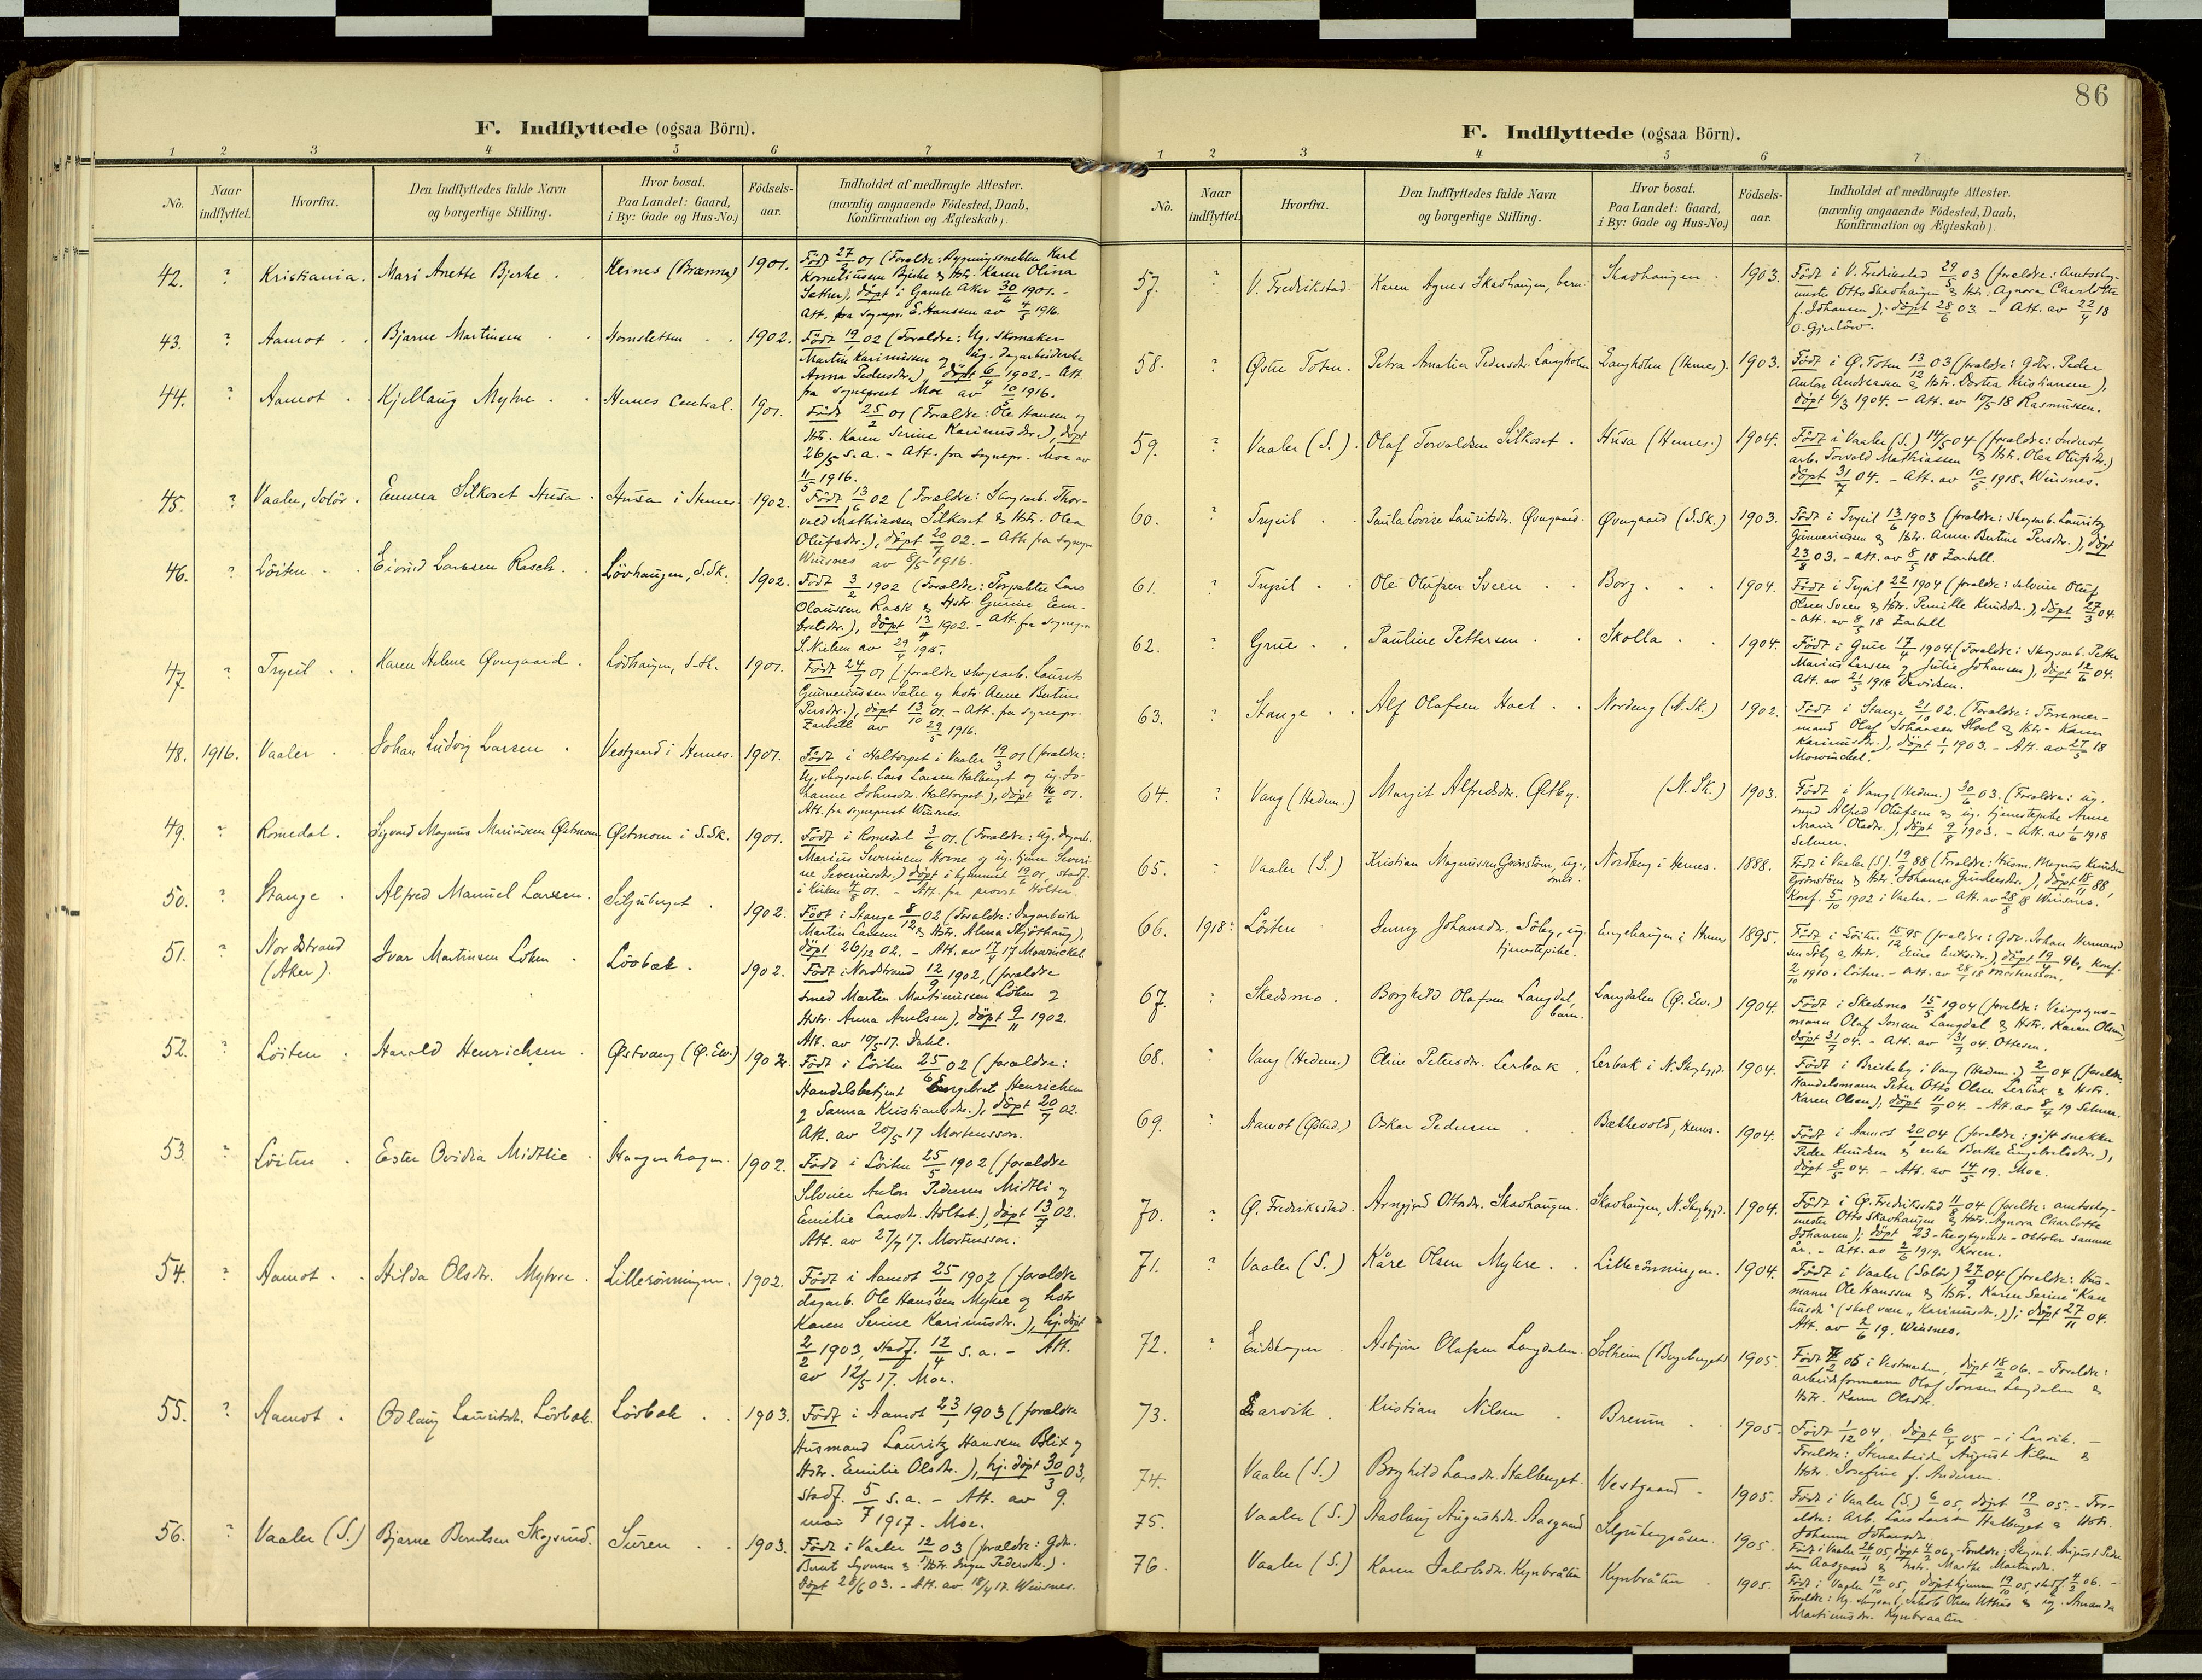 86
F. Indflyttede (ogsaa Börn).
1 2 3 4 5 6 7
No. Naar indflyttet. Hvorfra. Den Indflyttedes fulde Navn og borgerlige Stilling. Hvor bosat. Paa Landet: Gaard, i By: Gade og Hus-No.) Födsels-aar. Indholdet af medbragte Attester. (navnlig angaaende Födested, Daab, Konfirmation og Ægteskab).
42. ? Kristiania. Mari Anette Bjerke. Heines (Brænna) 1901.
Födt 27/2 01 (Foreldre: Bygningssnekker Karl
Korneliussen Bjerke & Hstr. Karen Olina
Sæther), döpt i Gamle Aker 30/6 1901. -
Att. fra sognepr. E. Hanssen av 4/5 1916.
43. ? Aamot. Bjarne Martinsen Homsletten 1902.
Födt 19/1 02 (Foreldre: Ug. skomaker
Martin Karinussen og ug. dagarbeiderske
Anna Pedersdtr.), döpt 6/4 1902. - Att.
fra sogneprest Moe av 10/5 1916.
44. ? Aamot. Kjellaug Myhre Hernes Central. 1901.
Födt 25/2 01 (Foreldre: Ole Hansen og
Hstr. Karen Serine Karinusdtr.), döpt
26/5 s.a. - Att. fra sognepr. Moe av
11/5 1916.
45. ? Vaaler, Solör. Emma Silkoset Husa. Husa i Hernes. 1902.
Födt 13/6 02 (Foreldre: Skogsarb. Thor-
vald Mathiassen Silkoset & Hstr. Olea
Olufsdtr.), döpt 20/7 02. - Att. fra sognepr.
Winsnes av 8/5 1916.
46. ? Löiten. Eivind Larssen Rasch. Lövhaugen, S.Sk. 1902.
Födt 3/2 1902 (Foreldre: Torpabter Lars
Olaussen Rask & Hstr. Gunine Eem-
bretsdtr.), döpt 13/4 1902. - Att. fra sognepr.
S. Nielsen av 29/4 1915.
47. ? Trysil. Karen Helene Övergaard. Lövhaugen, S.Sk. 1901.
Födt 24/7 01 (foreldre skogsarb. Laurits
Gunneriussen Sætre og hstr. Anne Bertine
Persdtr.), döpt 13/10 01. - Att. fra sognepr.
Zarbell av 29/5 1916.
48. 1916. Vaaler. Johan Ludvig Larsen. Vestgaard i Hernes. 1901.
Födt i Haltorpet i Vaaler 19/3 01 (foreldre:
Ug. skogsarb. Lars Larsen Halberget og ug. Jo-
hanne Johnsdtr. Haltorpet), döpt 16/6 01.
Att. fra sogneprest Winsnes.
49. ? Romedal. Sigvard Magnus Mariussen Östmoen Östmoen i S.Sk. 1901.
Födt i Romedal 3/6 01. (Foreldre: Ug. dagarb.
Marius Severinsen Horne og ug. tjener Severi-
ne Severinsdtr.) döpt i hjemmet 19/6 01, stadf.
i kirken 4/8 01. - Att. fra provst Holter.
50. ? Stange. Alfred Manuel Larsen. Siljuberget. 1902.
Födt i Stange 8/12 02 (Foreldre: Dagarbeider
Martin Larsen & Hstr. Alma Skjöthaug),
döpt 26/12 02. - Att. av 17/4 17 Mowinckel.
51. ? Nordstrand (Aker). Ivar Martinsen Löken Lövbæk. 1902.
Födt i Nordstrand 12/9 1902, (foreldre
smed Martin Martinussen Löken og
Hstr. Anna Arnesen), döpt 9/11 1902.
Att. av 10/5 17. Dahl.
52. ? Löiten. Harald Henrichsen. Östvang (Ö. Elv.) 1902.
Födt i Löiten 25/6 02 (foreldre:
Handelsbetjent Engebret Henrichsen
og Sanna Kristiansdtr.), döpt 20/7 02.
Att. av 20/5 17 Mortensson.
53. ? Löiten. Ester Ovidia Midtlie. Haugenhagen. 1902.
Födt i Löiten 25/5 1902 (foreldre
Selveier Anton Pedersen Midtli og
Emilie Larsdtr. Holtet), döpt 13/7 02.
Att. av 27/4 17. Mortensson.
54. ? Aamot. Hilda Olsdtr. Myhre. Lillerönningen. 1902.
Födt i Aamot 25/11 1902 (foreldre
dagarb. Ole Hanssen Myhre og hstr
Karen Serine Karinusdtr.), hj. döpt
2/2 1903, stadf. 12/4 s.a. - Att.
av 12/5 17. Moe.
55. ? Aamot. Odlaug Lauritsdtr. Lövbæk. Lövbæk. 1903.
Födt i Aamot 23/1 1903 (foreldre
Husmand Lauritz Hansen Blix og
Hstr. Emilie Olsdtr.), hj. döpt 30/3 03,
stadf. 5/7 s.a. - Att. av 9.
mai 1917. - Moe.
56. ? Vaaler (S.) Bjarne Berntsen Skogsrud. Suren 1903.
Födt i Vaaler 12/1 03 (foreldre: Gdbr.
Bernt Syversen & Hstr. Inger Pedersdtr.).
Döpt 28/6 03. - Att. av 18/4 17. Winsnes.
F. Indflyttede (ogsaa Börn).
1 2 3 4 5 6 7
No. Naar indflyttet. Hvorfra. Den Indflyttedes fulde Navn og borgerlige Stilling. Hvor bosat. Paa Landet: Gaard, i By: Gade og Hus-No.) Födsels-aar. Indholdet af medbragte Attester. (navnlig angaaende Födested, Daab, Konfirmation og Ægteskab).
57. ? V. Fredrikstad. Karen Agnes Skavhaugen, barn. Skavhaugen. 1903.
Födt i V. Fredrikstad 29/5 03 (foreldre: Amtsskog-
mester Otto Skavhaugen & Hstr. Agnora Charlotte
f. Johansen); döpt 28/6 03 - Att. av 22/4 18
O. Gjerlöw.
58. ? Østre Toten. Petra Amalie Pedersdtr. Langholen Langholen (Hernes). 1903.
Födt i Ø. Toten 13/12 03 (foreldre: Gdbr. Peder
Anton Andreasen & Hstr. Dortea Kristiansen),
döpt 6/3 1904. - Att. av 10/5 18 Rasmussen.
59. ? Vaaler (S.). Olaf Torvaldsen Silkoset. Husa (Hernes.) 1904.
Födt i Vaaler (S.) 14/5 04 (foreldre: Indust.
arb. Torvald Mathiassen & Hstr. Olea Olufsdtr.)
döpt 31/7 04. - Att. av 10/5 1918. Winsnes.
60. ? Trysil Paula Lovise Lauritsdtr. Øvergaard. Øvergaard (S.Sk.) 1903.
Födt i Trysil 13/6 1903 (foreldre: Skogsarb. Lauritz
Gunneriussen & Hstr. Anne Bertine Persdtr.), döpt
23/8 03. - Att. av 8/5 18 Zarbell.
61. ? Trysil Ole Olufsen Sveen Borg 1904.
Födt i Trysil 22/1 1904 (foreldre: selveier Oluf
Olsen Sveen & Hstr. Pernille Knudsdtr.), döpt 27/3 04.
- Att. av 8/5 18 Zarbell
62. ? Grue Pauline Pettersen Skolla 1904.
Födt i Grue 17/4 1904 (Foreldre: Skogsarb. Petter
Marius Larsen og Julie Johansen), döpt 12/6 04.
Att. av 21/5 1918 Davidsen.
63. ? Stange Alf Olafsen Hoel Nordeng (N.Sk.) 1902.
Födt i Stange 21/10 02. (Foreldre: Tömmer-
mand Olaf Johansen Hoel & Hstr. Karen
Karinusdtr.), döpt 1/1 1903. - Att. av 27/5 18
Mowinckel.
64. ? Vang (Hedem.) Margit Alfredsdtr. Østby. (N. Sk.) 1903.
Födt i Vang (Hedem.) 30/6 03. (Foreldre: ug.
smed Alfred Olufsen & ug. tjenestepike Anne
Marie Olsdtr.), döpt 9/8 1903. - Att. av 1/6 1918
Selmer.
65. ? Vaaler (S.) Kristian Magnussen Grönstöen, ug., smed. Nordberg i Hernes. 1888.
Födt i Vaaler (S.) 19/9 88 (Foreldre: Husm. Magnus Knudsen
Grönstöen & Hstr. Johanne Gundersdtr.), döpt 18/11 88,
Konf. 5/10 1902 i Vaaler. - Att. av 28/8 18 Winsnes.
66. 1918 Löiten Jenny Johansdtr. Söby, ug. tjenestepike. Engehaugen i Hernes 1895.
Födt i Löiten 15/12 95 (foreldre: Gdbr. Johan Hermand-
sen Söby & Hstr. Eline Eriksdtr.), döpt 19/4 96, konf.
2/10 1910 i Löiten. - Att. av 28/9 18 Mortensson.
67. ? Skedsmo. Borghild Olafsen Langdal, barn. Langdalen (Ø. Elv.) 1904.
Födt i Skedsmo 15/5 1904 (foreldre: Veiopsyns-
mann Olaf Jonsen Langdal & Hstr. Karen Olsen)
döpt 31/7 04. - Att. av 31/7 04. Ottesen.
68. ? Vang (Hedem.) Eline Petersdtr. Lerbak. Lerbak i N. Skogbygd. 1904.
Födt i Briskeby i Vang (Hedem.) 2/7 04 (foreldre:
Handelsmann Peter Otto Olsen Lerbak & Hstr.
Karen Olsen), döpt 11/9 04. - Att. av 8/4 19 Selmer.
69. ? Aamot (Østerd.) Oskar Pedersen Bækkevold, Hernes. 1904.
Födt i Aamot 20/1 04 (foreldre: gift snekker
Peder Knudsen & enke Berthe Engebretsdtr.),
döpt 8/5 04. - Att. av 14/5 19. Moe.
70. ? Ø. Fredrikstad. Arngjerd Ottosdtr. Skavhaugen. Skavhaugen, N. Skogbygd. 1904.
Födt i Ø. Fredrikstad 11/8 04 (foreldre: amtsskog-
mester Otto Skavhaugen & Hstr. Agnora Charlotte
Johansen); döpt 23 - tre og tyvende - oktober samme
år. - Att. av 2/6 1919. Koren.
71. ? Vaaler (S.) Kåre Olsen Myhre. Lillerönningen. 1904.
Födt i Vaaler (Solör) 27/9 04 (foreldre: Hus-
mann Ole Hanssen & Hstr. Karen Serine "Kare
liusdtr." (skal være "Karinusdtr.")); döpt 27/11 04.
Att. av 2/6 19. Winsnes.
72. ? Eidskogen. Asbjörn Olafsen Langdalen. Solheim (Bergeberget) 1905.
05 i Vestmarken, döpt 18/2 06. - Foreldre:
arbeidsformann Olaf Jonsen Langdalen &
Hstr. Karen Olsdtr.
73. Larvik. Kristian Nilsen Breum 1905.
Födt 1/12 04, döpt 6/4 05 - i Larvik. -
Foreldre: Stenarbeider August Nilsen &
Hstr. Josefine f. Andersen.
74. Vaaler (S.) Borghild Larsdtr. Halberget. Vestgaard 1905.
Födt i Vaaler (S.) 6/1 05, döpt 19/3 05. - For-
eldre: Arb. Lars Larsen Halberget & Hstr.
Johanne Johansdtr.
75. Vaaler (S.) Aaslaug Augustsdtr. Aasgaard Siljubergåsen. 1905.
Födt i Vaaler 26/11 05, döpt 4/2 06. - Foreldre: Skogarb. August Peder-
sen Aasgaard & Hstr. Marthe Martinsdtr.
76. Vaaler (S.) Karen Jakobsdtr. Kynbråten Kynbråten 1905.
Födt i Vaaler 12/10 05, döpt hjemme 19/10 05, stadf. 4/2 06. -
Foreldre: Ug. skogsarb. Jakob Olsen & ug. Amanda
Martinusdtr. Kynbraaten.